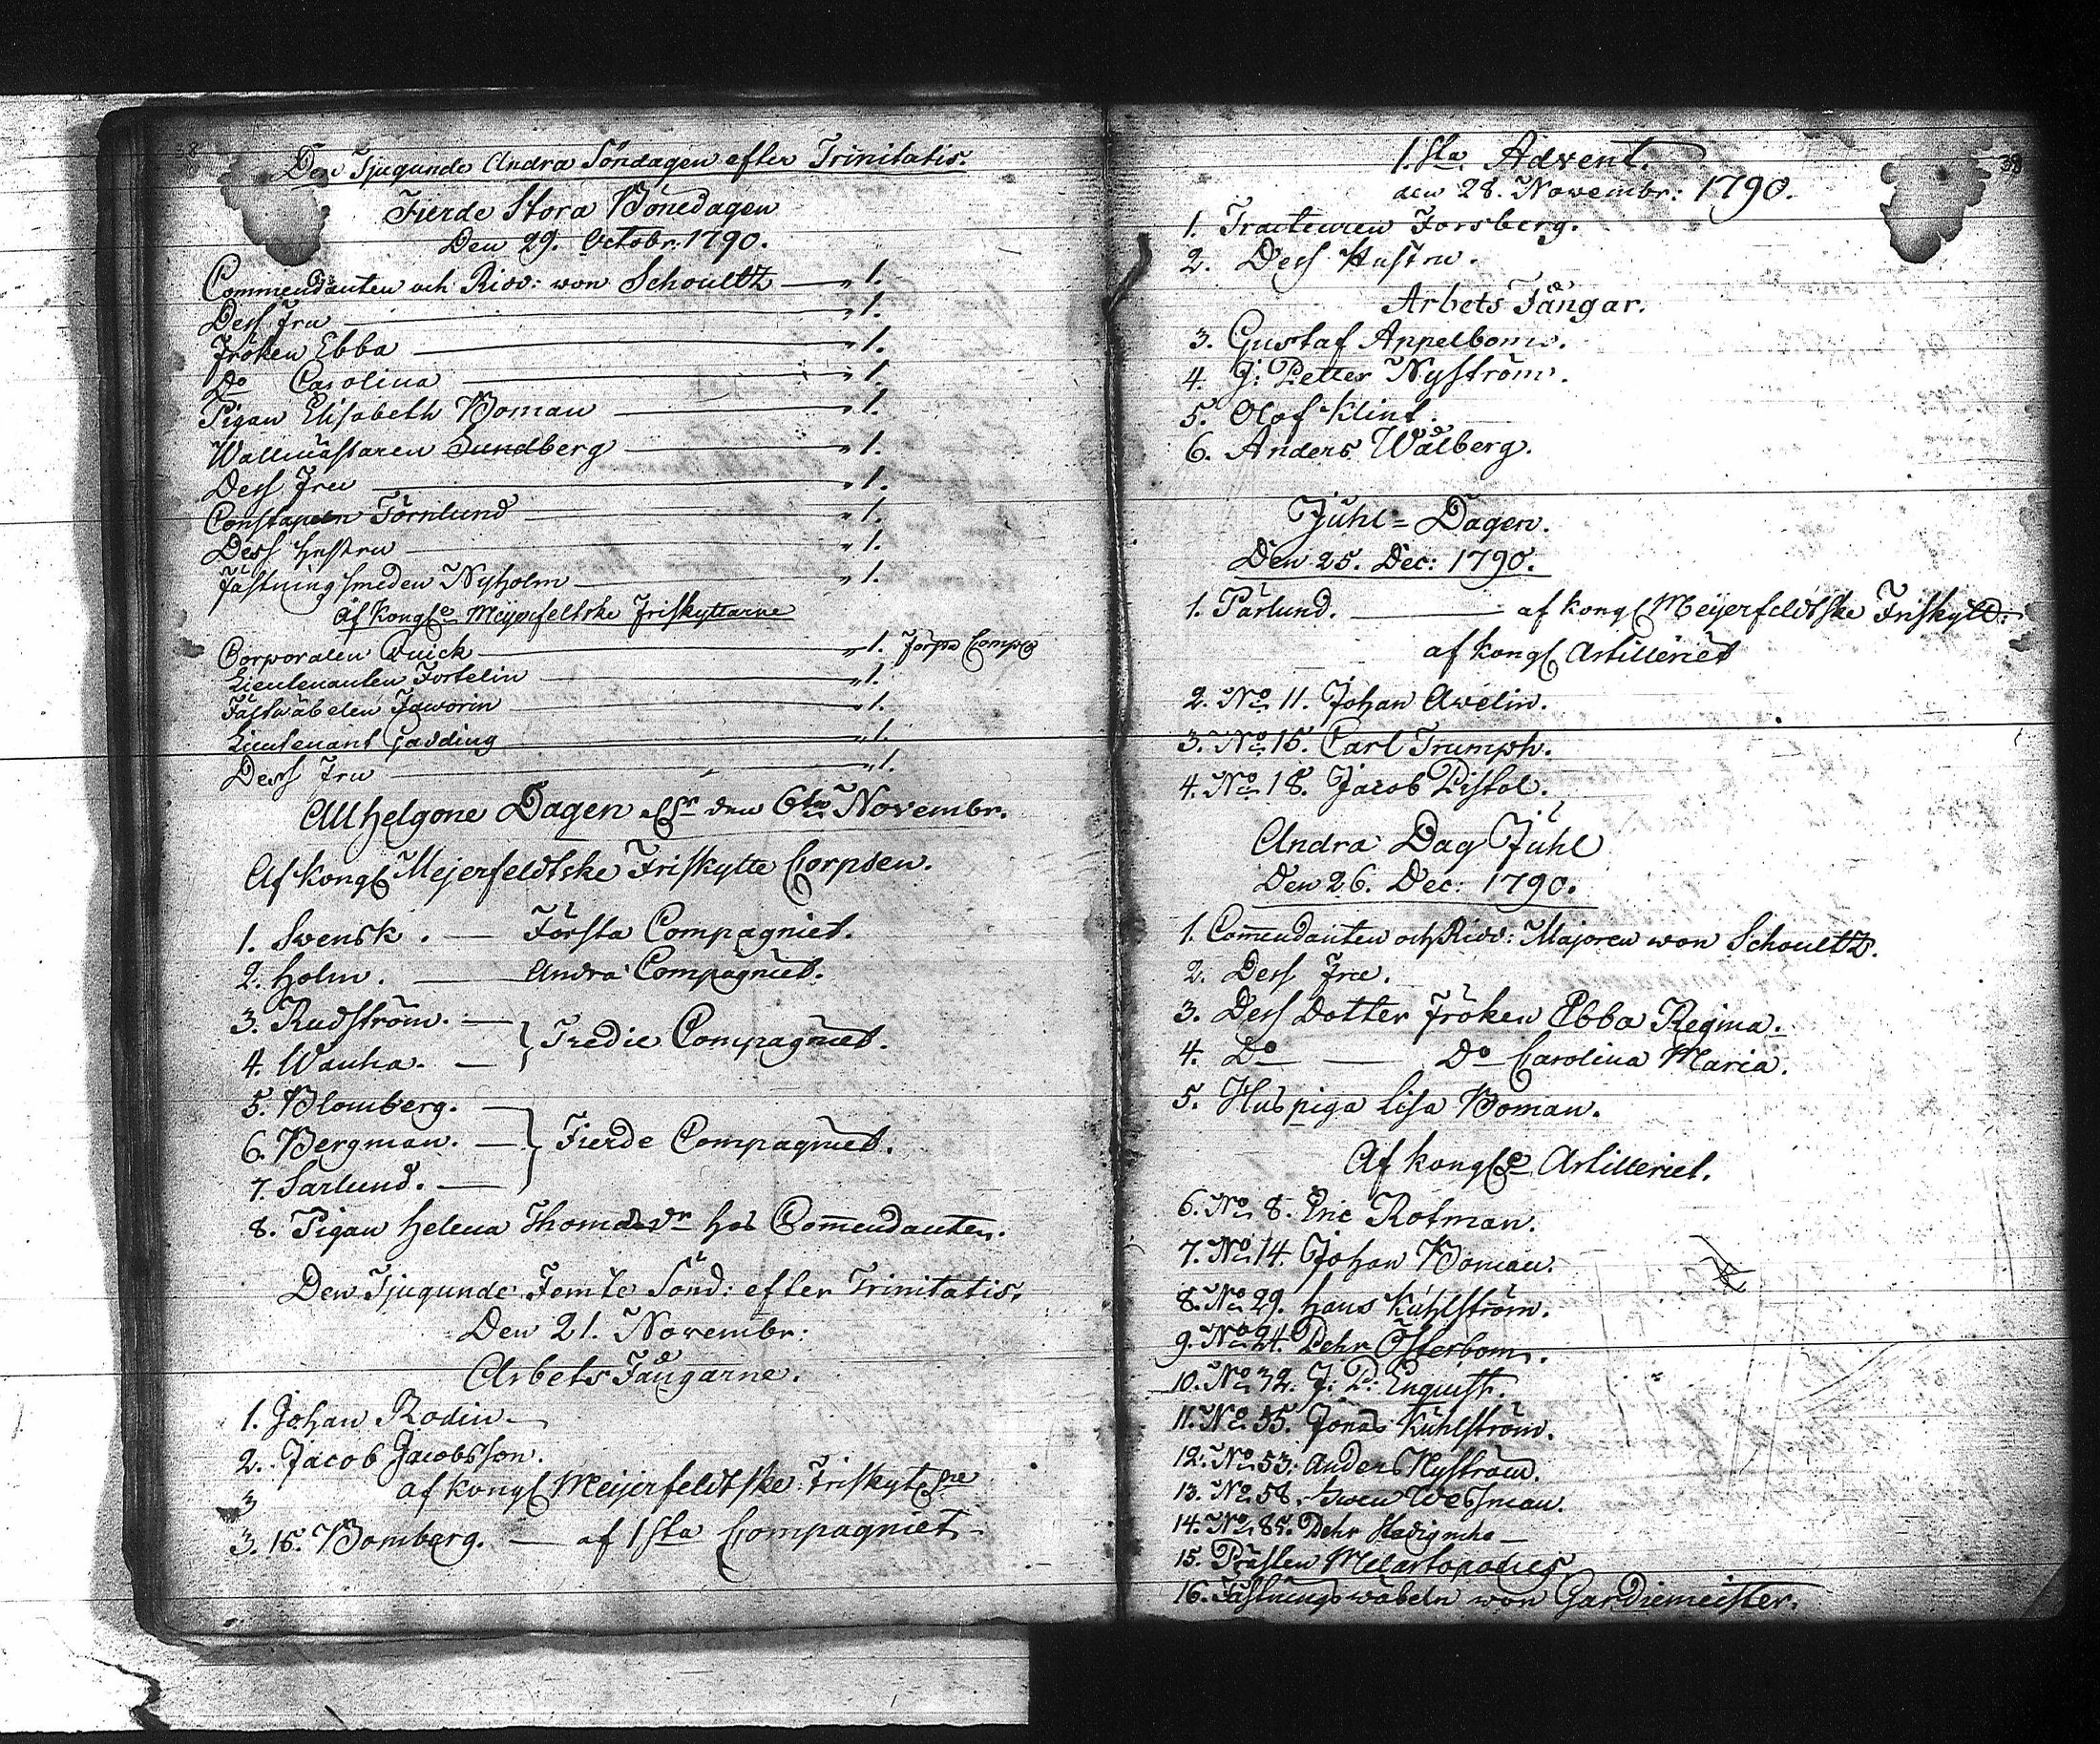 Den Tjugunde Andra Söndagen efter Trinitatis.
Fierde Stora Bönedagen
Den 29. Octobr: 1790.
Commendanten och Ridd: von Schoultz — 1.
Dess Fru — 1.
Fröken Ebba — 1.
Do Carolina — 1.
Pigan Elisabeth Boman — 1.
Wallmästaren Sundberg — 1.
Dess Fru — 1.
Constapeln Törnlund — 1.
Dess Hustru — 1.
Fästningssmeden Nyholm — 1.
Af Kongl. Meijerfeltske Friskyttarne
Corporalen Quick — 1. Första Comp:
Lieutenanten Fortelin — 1.
Fältwäbelen Jaworin — 1.
Lieutenant Gadding — 1.
Dess Fru — 1.
Allhelgone Dagen den 6te Novembr.
Af Kongl Mejerfeldtske Friskytte Corpsen.
1. Svensk. — Första Compagniet.
2. Holm. — Andra Compagniet.
3. Rudström. —
4. Wanha. — } Tredie Compagniet.
5. Blomberg. —
6. Bergman. — } Fierde Compagniet.
7. Sarlund. —
8. Pigan Helena Thomasdr hos Commendanten.
Den Tjugunde Femte Sönd: efter Trinitatis.
Den 21. Novembr:
Arbets Fångarne.
1. Johan Rodin —
2. Jacob Jacobsson.
af Kongl Meijerfeldtske Friskyt:ne
3
3. 15. Bomberg. — af 1sta Compagniet —
38
1.sta Advent.
den 28. Novembr: 1790.
1. Tracteuren Forsberg.
2. Dess Hustru.
Arbets Fångar.
3. Gustaf Appelbom.
4. J: Petter Nyström.
5. Olof Klint.
6. Anders Wålberg.
Juhl-Dagen.
Den 25. Dec: 1790.
1. Pärlund. — af Kongl Meijerfeldtske Friskytt:
af Kongl Artilleriet
2. No 11. Johan Avelin.
3. No 15. Carl Trumph.
4. No 18. Jacob Pistol.
Andra Dag Juhl
Den 26. Dec: 1790.
1. Commendanten och Ridd: Majoren von Schoultz.
2. Dess Fru.
3. Dess Dotter Fröken Ebba Regina.
4. Do — Do Carolina Maria.
5. Huspiga Lisa Boman.
Af Kongl Artilleriet.
6. No 8. Eric Rotman.
7. No 14. Johan Boman.
8. No 29. Hans Kuhlström.
9. No 24. Pehr Österbom.
10. No 32. J: P: Enquist.
11. No 35. Jonas Kuhlström.
12. No 53. Anders Nyström.
13. No 58. Swen Wessman.
14. No 85. Pehr —
15. Prästen
16. Fästningswäbeln von Gardiemeister.